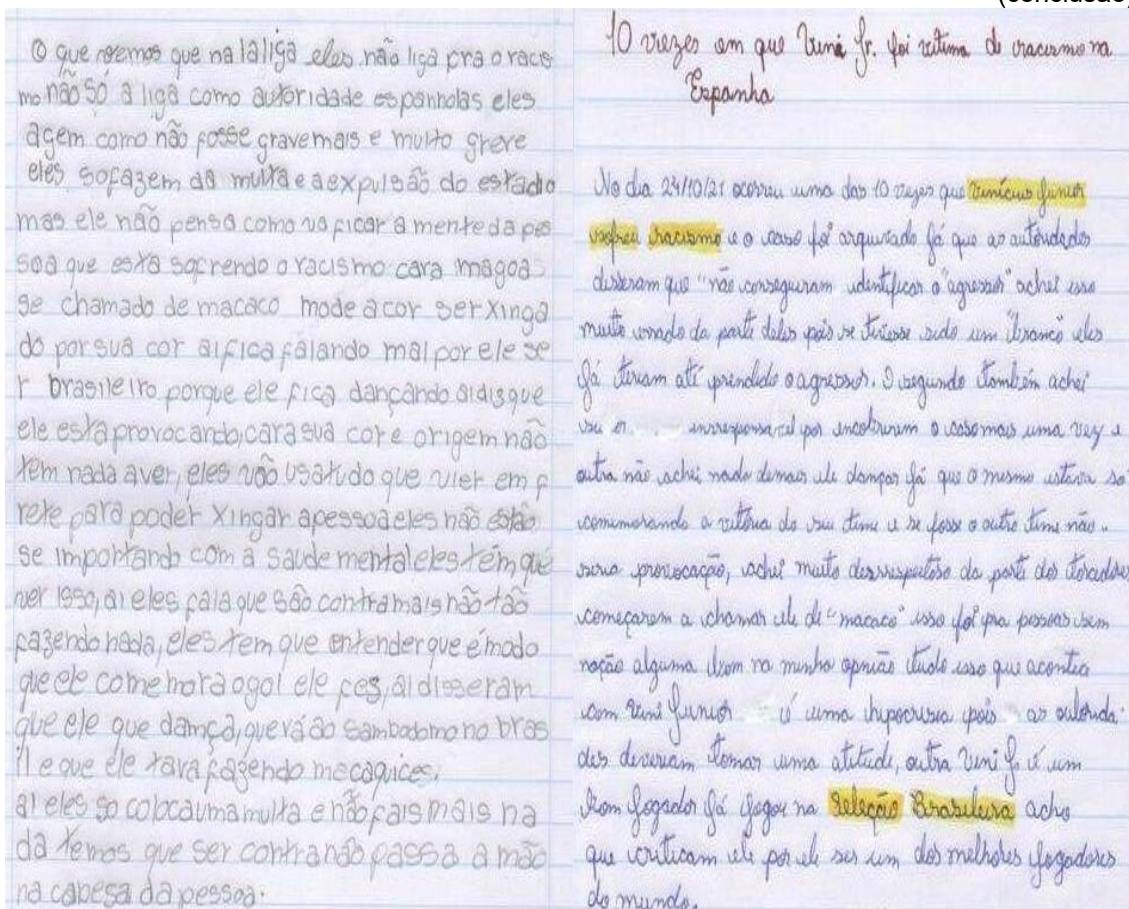 (conclusão)
O que vemos que na laliga eles não liga pra o race
mo não só a liga como autoridade espanholas eles
agem como não fosse grave mais e muito greve
eles so fazem da multa e a expulsão do estádio
mas ele não pensa como va ficar a mente da pes
soa que esta sofrendo o racismo cara magoa
se chamado de macaco mode a cor ser xinga
do por sua cor ai fica falando mal por ele se
r brasileiro porque ele fica dançando ai dis que
ele esta provocando, cara sua cor e origem não
tem nada aver, eles vão usa tudo que vier em f
rete para poder xingar a pessoa eles não estão
se importando com a saude mental eles têm que
ver isso, ai eles fala que são contra mais não tão
fazendo nada, eles tem que entender que é modo
que ele comemora o gol ele fes, ai disseram
que ele que damça, que vá ao sambodomo no bras
il e que ele tava fazendo macaquices.
ai eles so coloca uma multa e não fais mais na
da temos que ser contra não passa a mão
na cabesa da pessoa.
10 vezes em que Vini Jr. foi vitima de racismo na
Espanha
No dia 24/10/21 ocorreu uma das 10 vezes que Vinícius Junior
sofreu racismo e o caso foi arquivado já que as autoridades
disseram que "não conseguiram identificar o "agressor" achei isso
muito errado da parte deles pois se tivesse sido um "branco" eles
já teriam até prendido o agressor. O segundo também achei
irresponsavel por encobrirem o caso mais uma vez e
outra não achei nada demais ele dançar já que o mesmo estava so
comemorando a vitória do seu time e se fosse o outro time não
seria provocação, achei muito desrespeitoso da parte dos torcedores
começarem a chamar ele de "macaco" isso foi pra pessoas sem
noção alguma bom na minha opnião tudo isso que acontia
com Vini Junior é uma hipocrisia pois as autorida-
des deveriam tomar uma atitude, outra Vini Jr é um
bom jogador já jogou na Seleção Brasileira acho
que criticam ele por ele ser um dos melhores jogadores
do mundo.